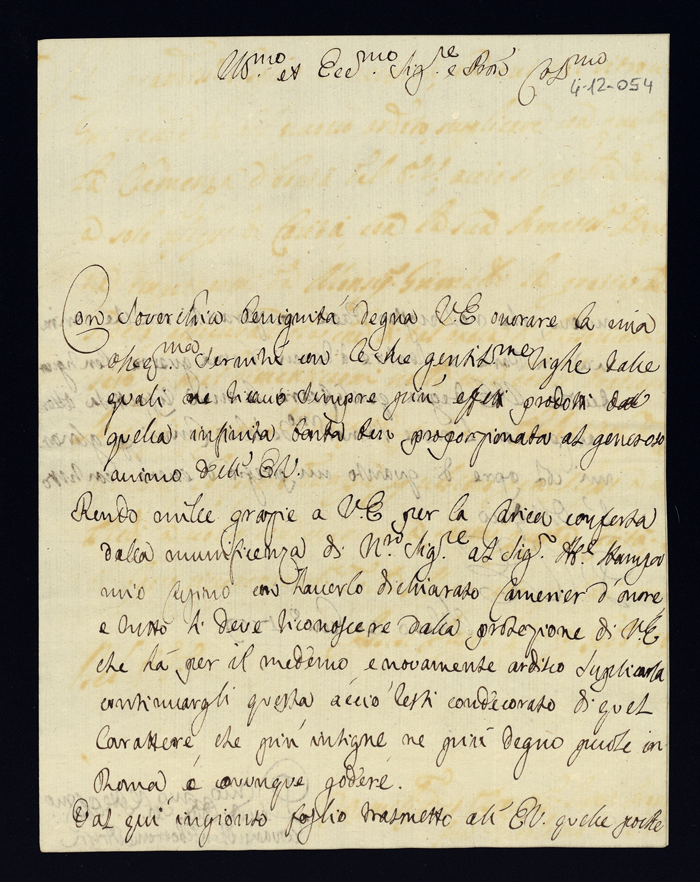 Ill.mo et Ecc.mo Sig.re e Pron Col.mo
4-12-054
Con soverchia benignità degna V.E. onorare la mia
osseq.ma servitù con le sue gentil.me righe dalle
quali ne ricavo sempre più effetti prodotti da
quella infinita bontà ben proporzionata al generoso
animo dell' E.V.
Rendo mille grazie a V.E. per la carica conferta
dalla munificenza di N.ro Sig.re al Sig.r Ab.e
mio con haverlo dichiarato Camerier d'onore,
e tutto si deve riconoscere dalla protezione di V.E.
che ha per il medemo e novamente ardisco suplicarla
continuargli questa acciò resti condecorato di quel
Carattere che più insigne ne più degno puole in
Roma e ovunque godere.
Dal quì ingionto foglio trasmetto all' E.V. quelle poche